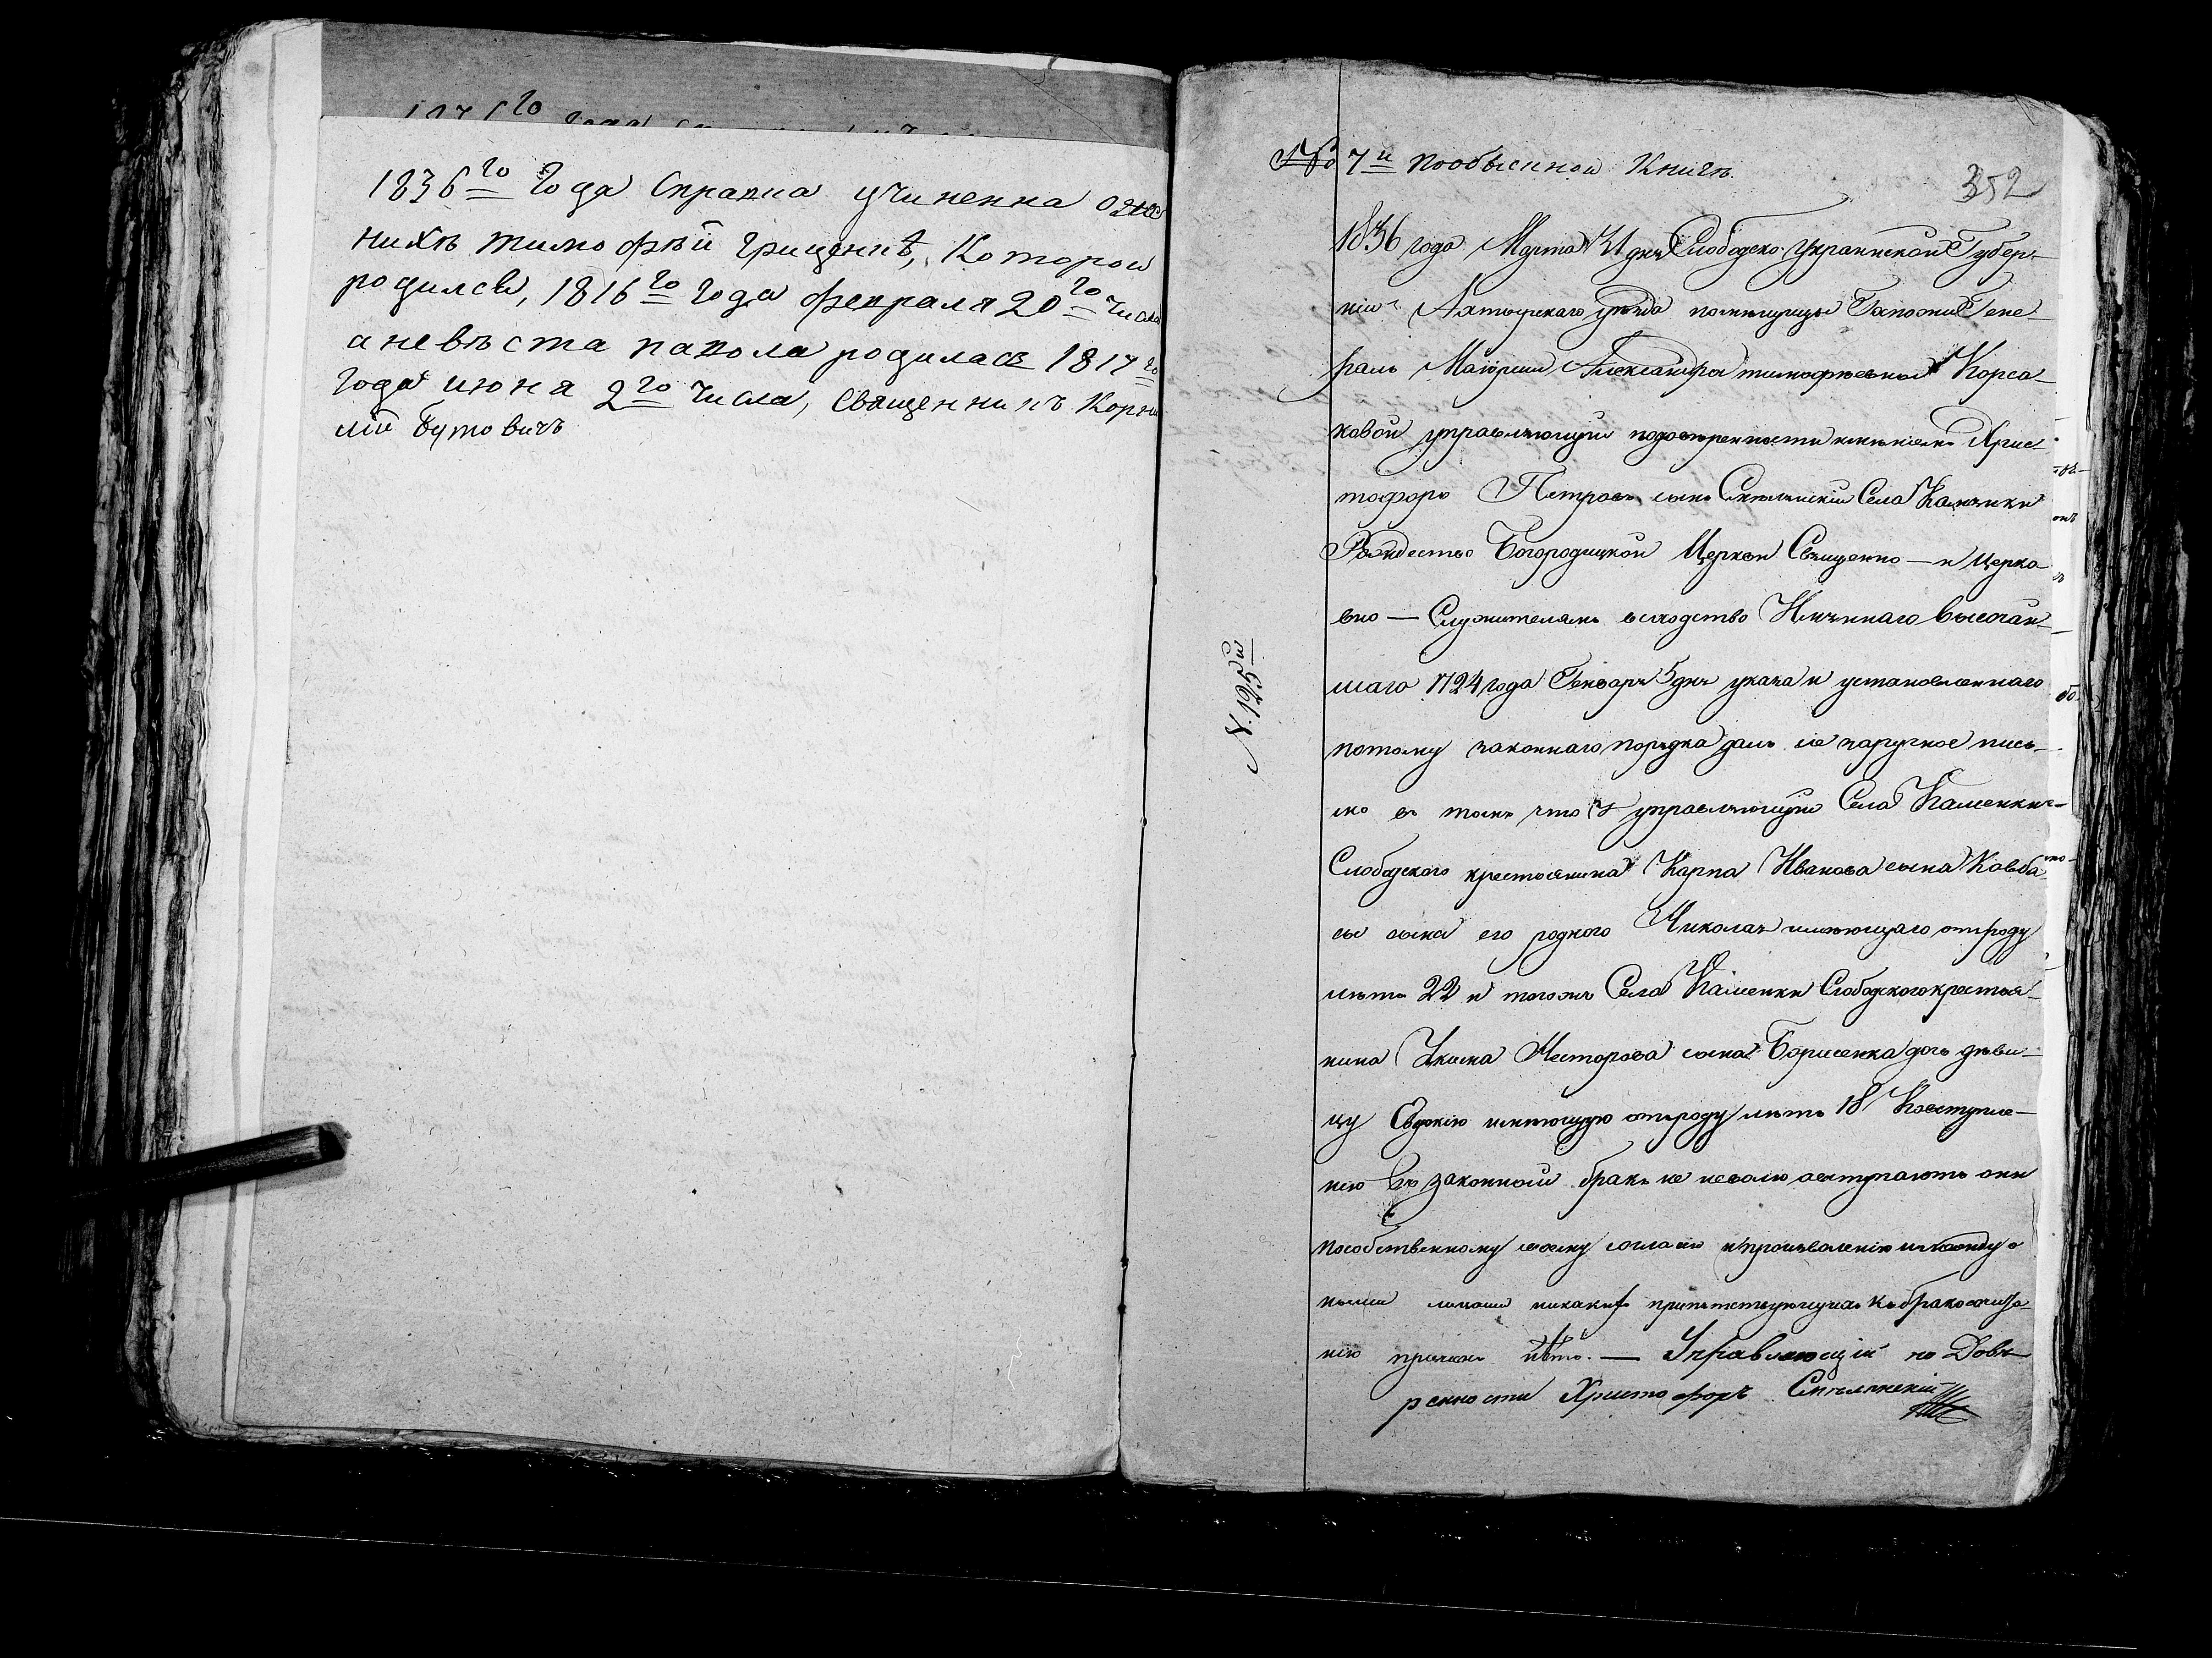 1836го года Справка учиненна о же
нихѣ тимофѣй Гриценкѣ, Которой
родился, 1816го года февраля 20го числа
а невѣста родилась 1817го
года июня 2го числа, Священникъ Корни
лій Бутовичъ
№ 7й пообыскной Книгѣ.
352
1836 года Марта 31 дня Слободско-Украинской Губер-
ніи Ахтырскаго уѣзда помѣщицы Госпожи Гене-
ралъ Маіорши Александры тимофѣевны Корса-
ковой управляющій подовѣренности имѣніемъ Хрис-
тофоръ Петровъ сынъ Смѣлянскій Села Каменки
Рождество Богородицкой Церкви Священно — и церко-
вно — Служителямъ вслѣдство Имяннаго высочай-
шаго 1724 года Генваря 5 дня указа и установленнаго
потому законнаго порядка далъ сіе заручное пись-
мо въ томъ что я управляющій Села Каменки
Слободского крестьянина Карпа Иванова сына Ковба-
сы сына его родного Николая имѣющаго отъроду
лѣтъ 22 и тогожъ Села Каменки Слободского крестья-
нина Якима Несторова сына Борисенка дочь дѣви-
цу Евдокію имѣющую отъроду лѣтъ 18 Квступле-
нію въ законной бракъ не неволю авступаютъ они
пособственному своему согласію ипроизволенію имежду о
ными лицами никакихъ припятствующихъ Кбракосочита-
нію причинъ нѣтъ. — Управляющій по Довѣ
ренности Христофоръ Смѣлянскій
№. 125й